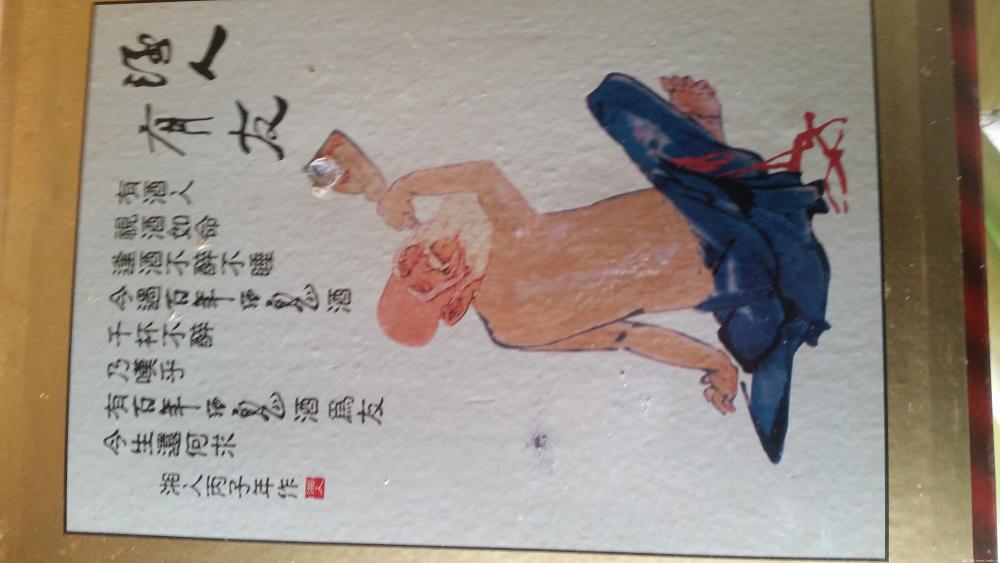 酒人
有友
有酒人
視酒如命
逢酒不醉不睡
今遇百年鬼酒
千杯不醉
乃嘆乎
有百年鬼酒爲友
今生還何求
湘人丙子年作